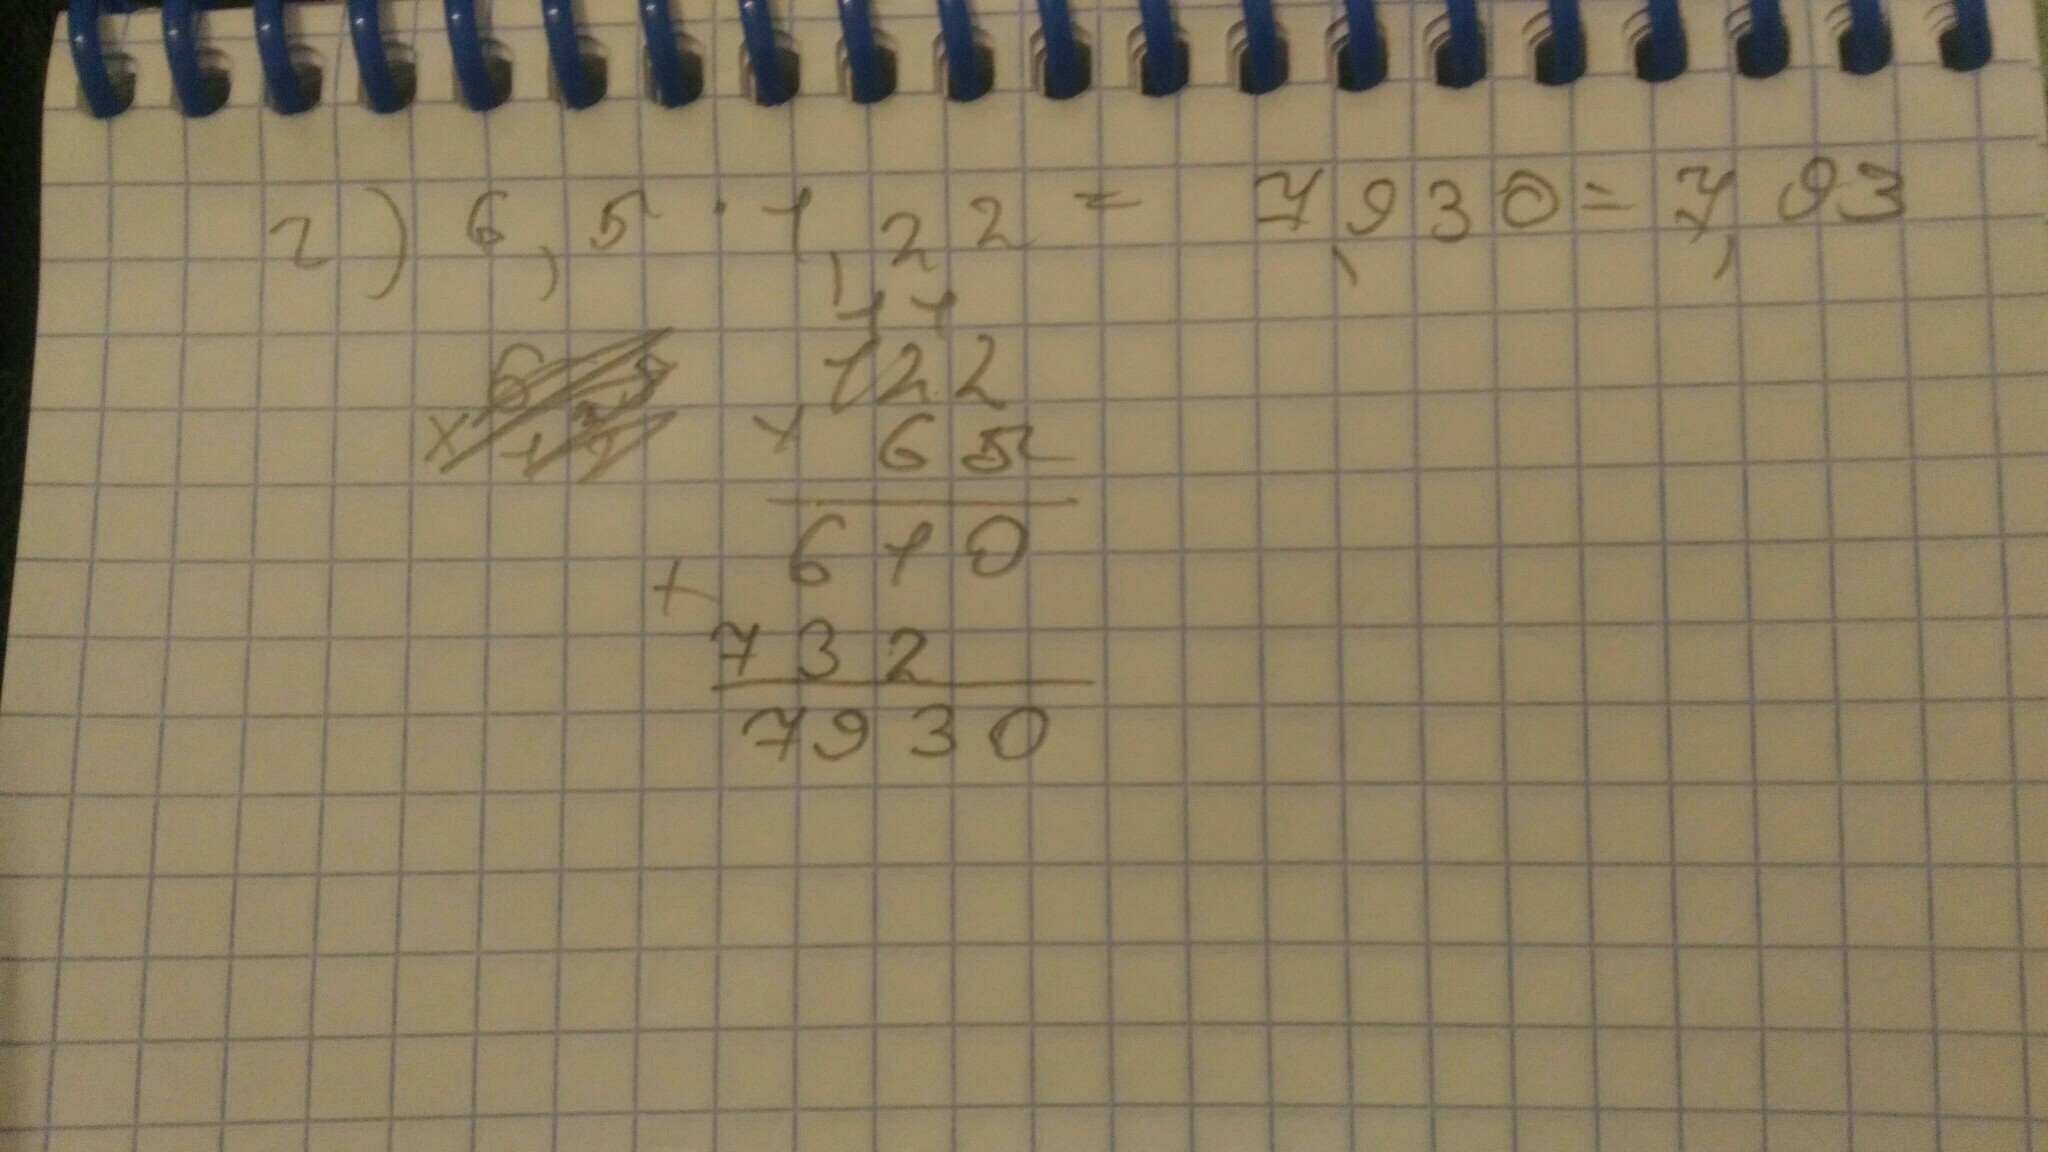 г) 6,5 · 1,22 = 7,930 = 7,93
11
122
× 65
610
+
732
7930